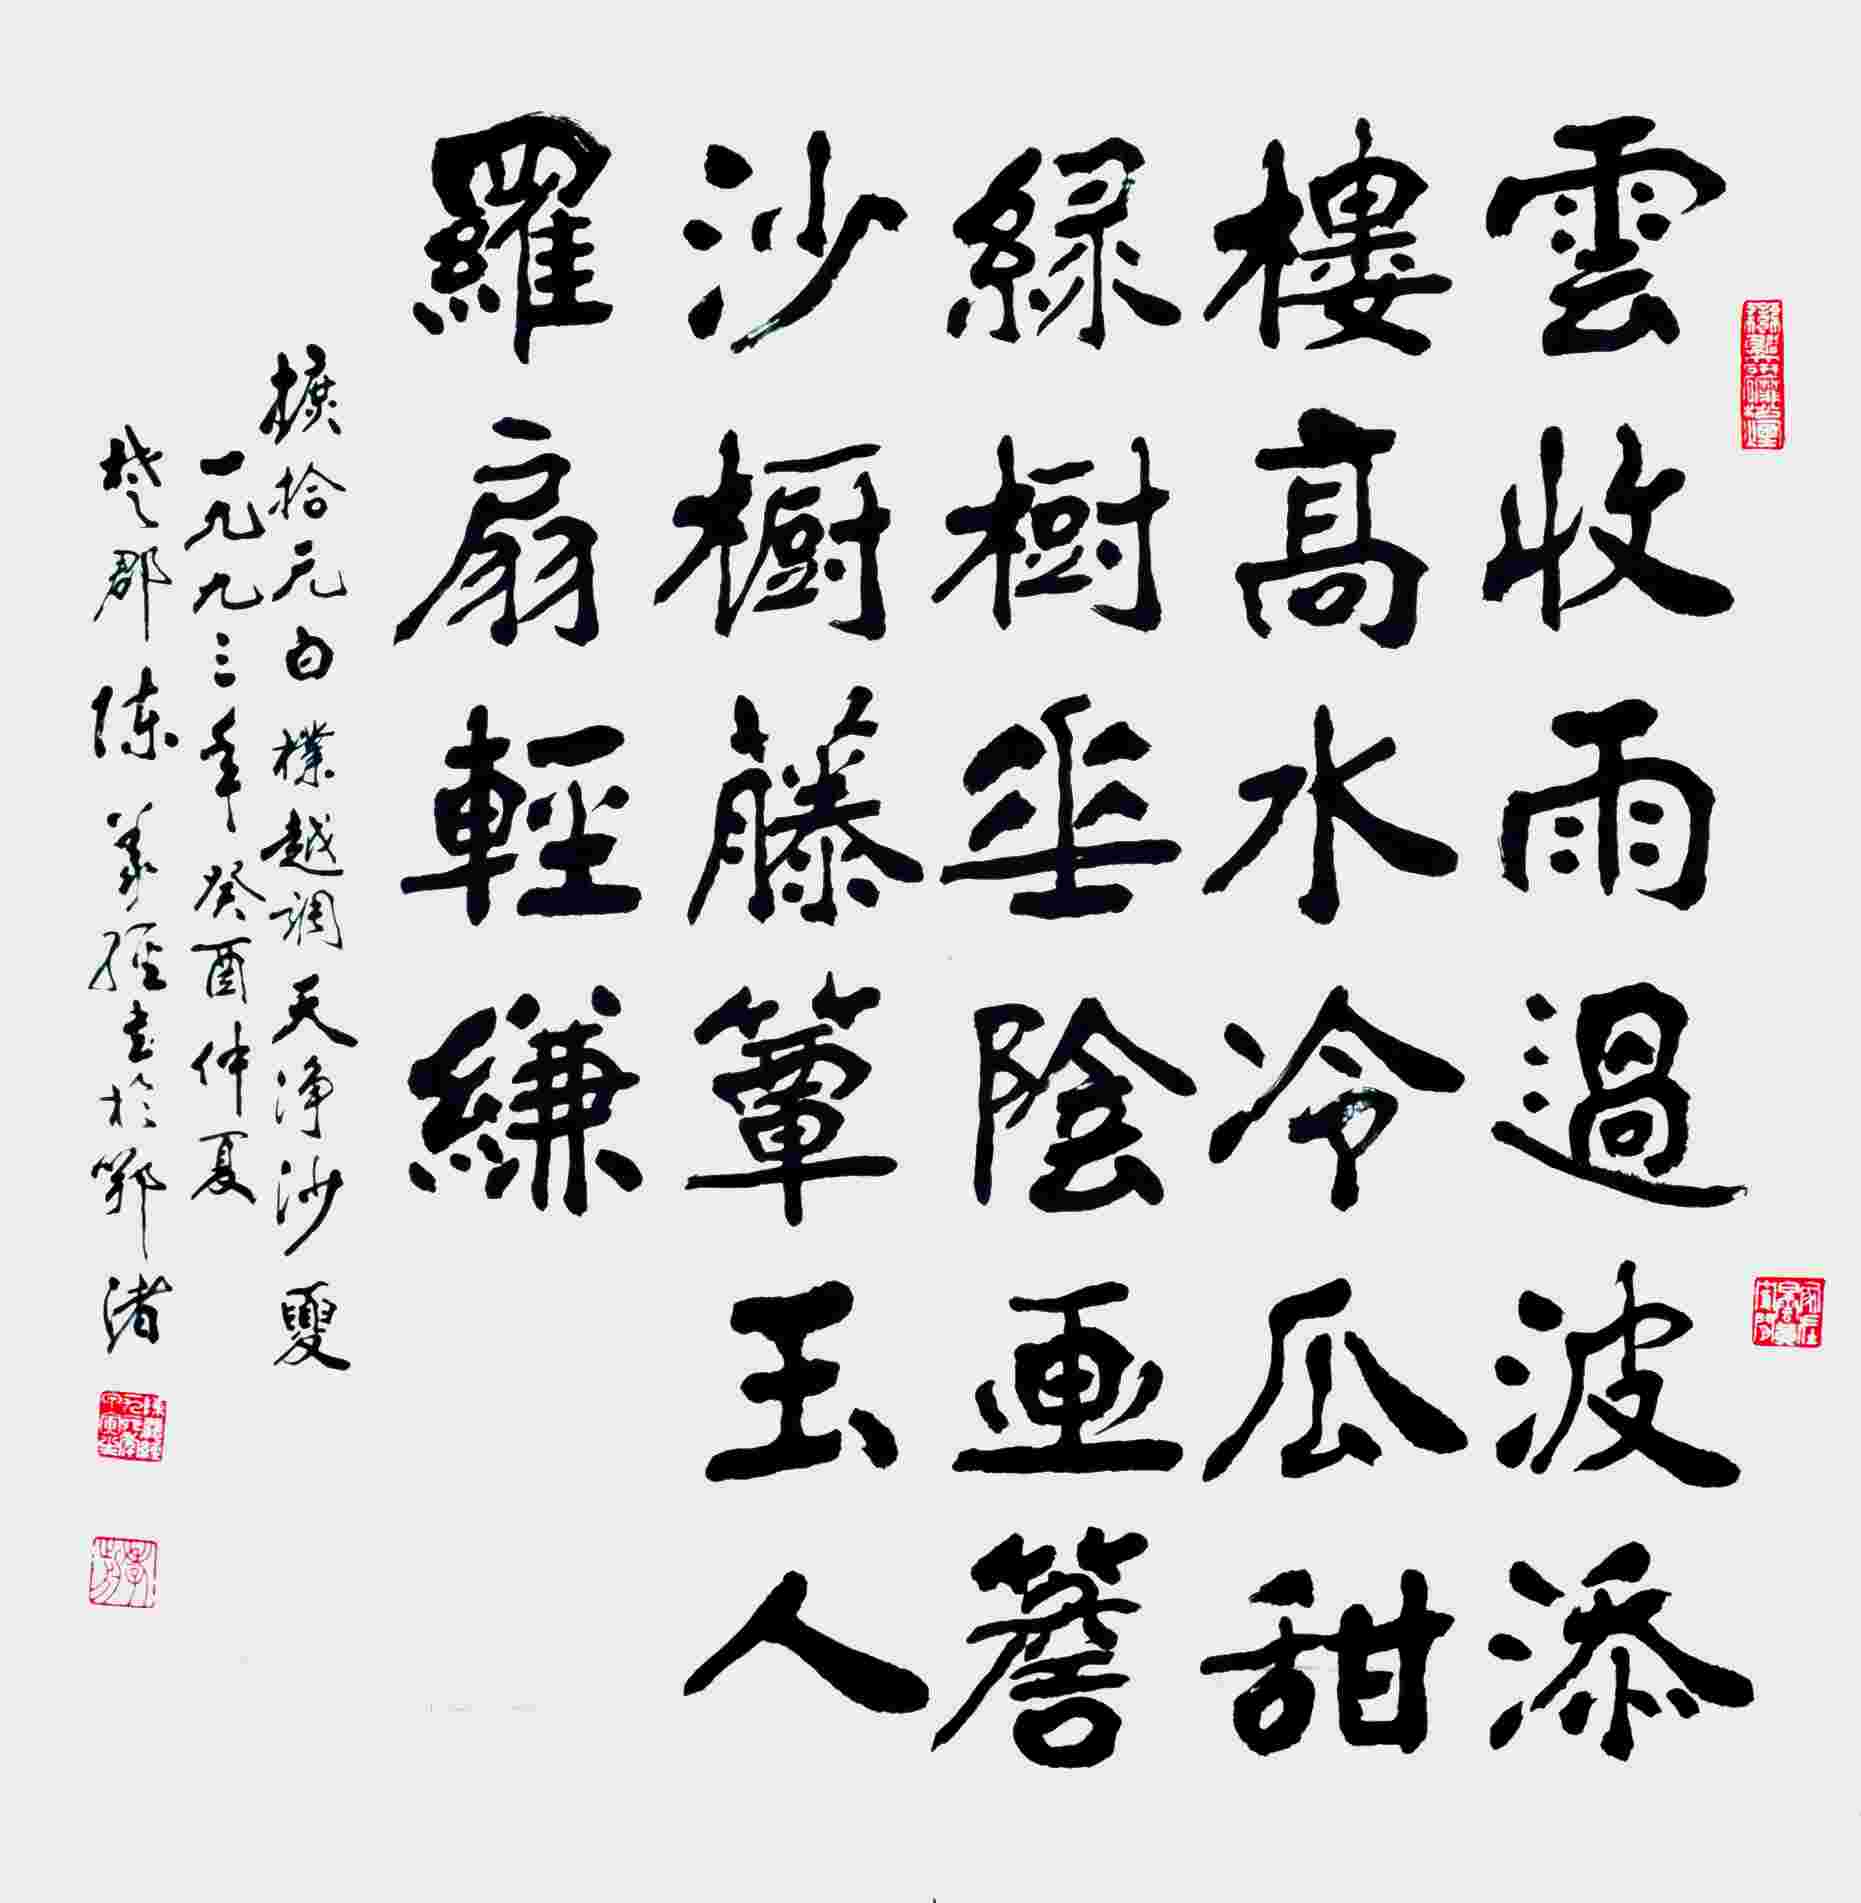 雲收雨過波添
樓高水冷瓜甜
綠樹垂陰画簷
沙橱藤簟玉人
羅扇輕縑
摭拾元白樸越調天净沙夏
一九九三年癸酉仲夏
楚郡陈義經書於鄂渚